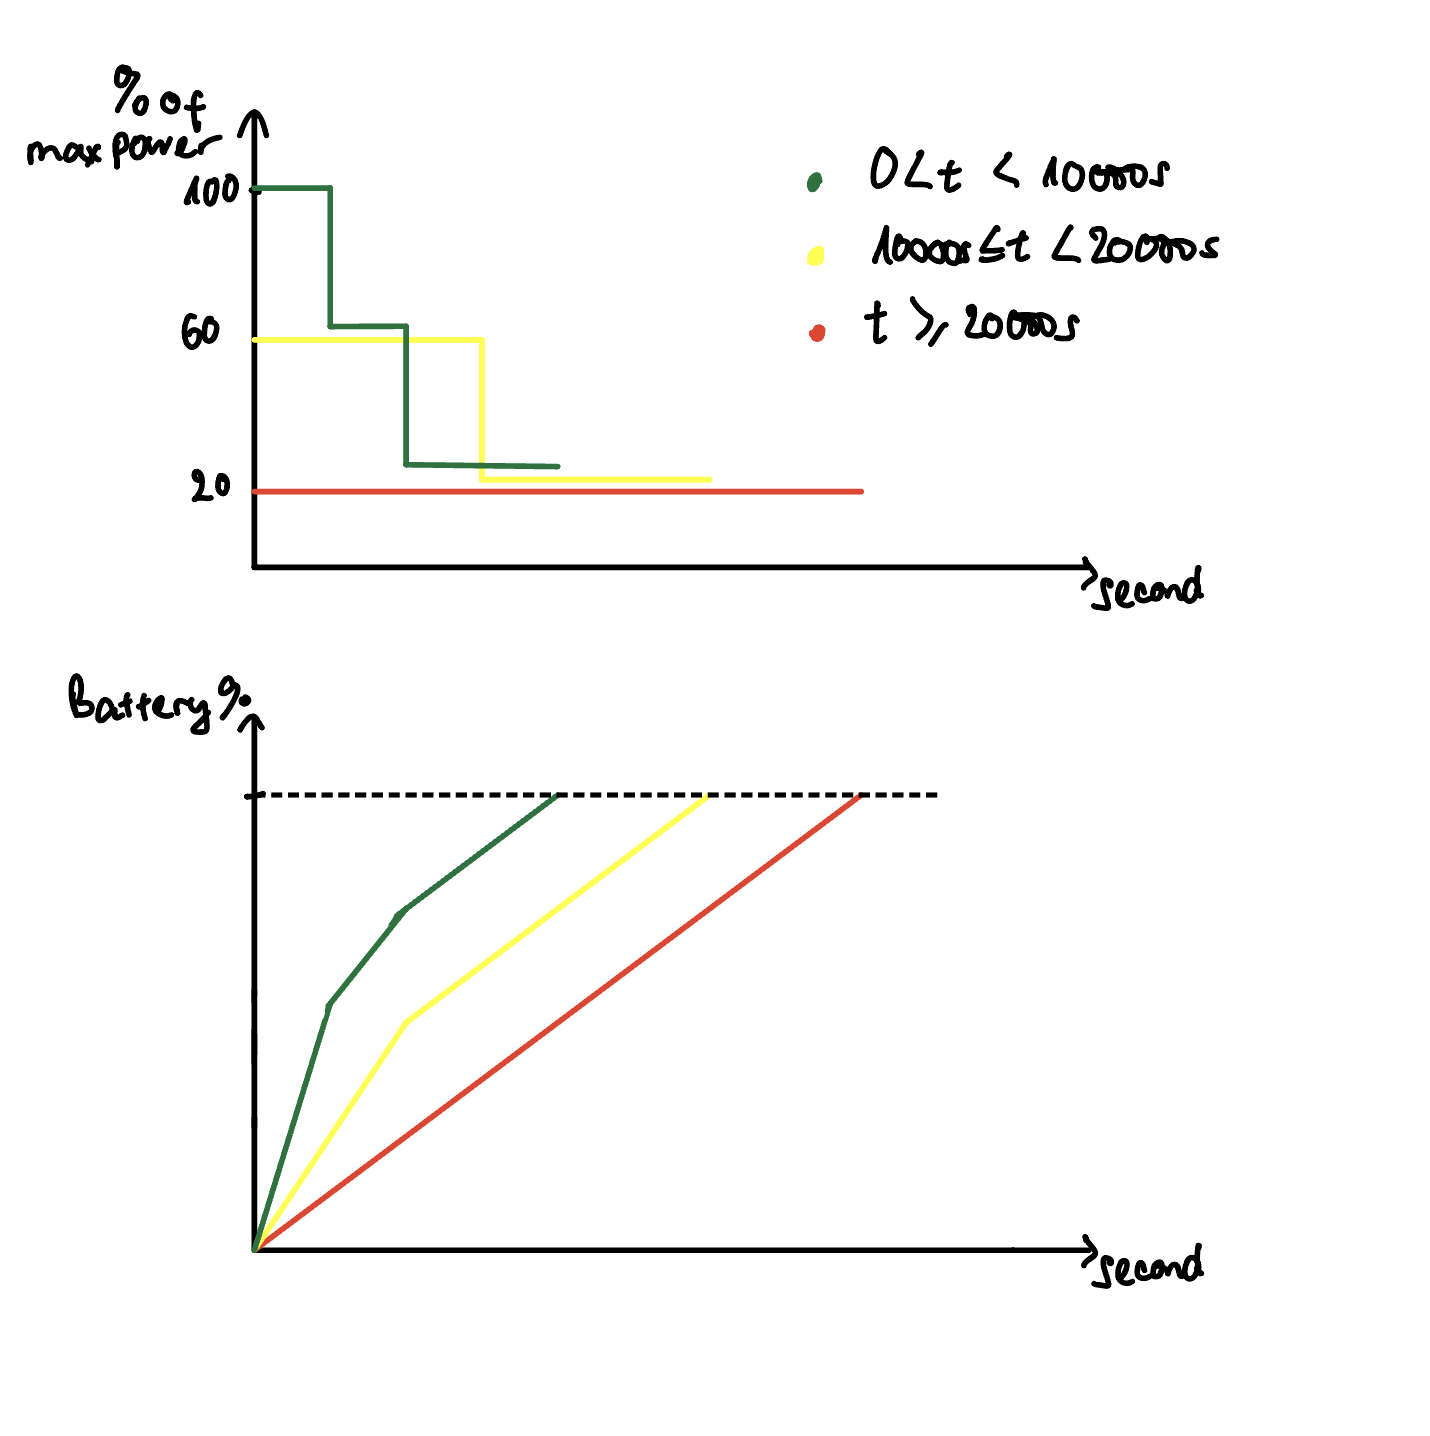 % of
max power
100
60
20
0 < t < 10000s
10000s ≤ t < 20000s
t ≥ 20000s
second
Battery %
second